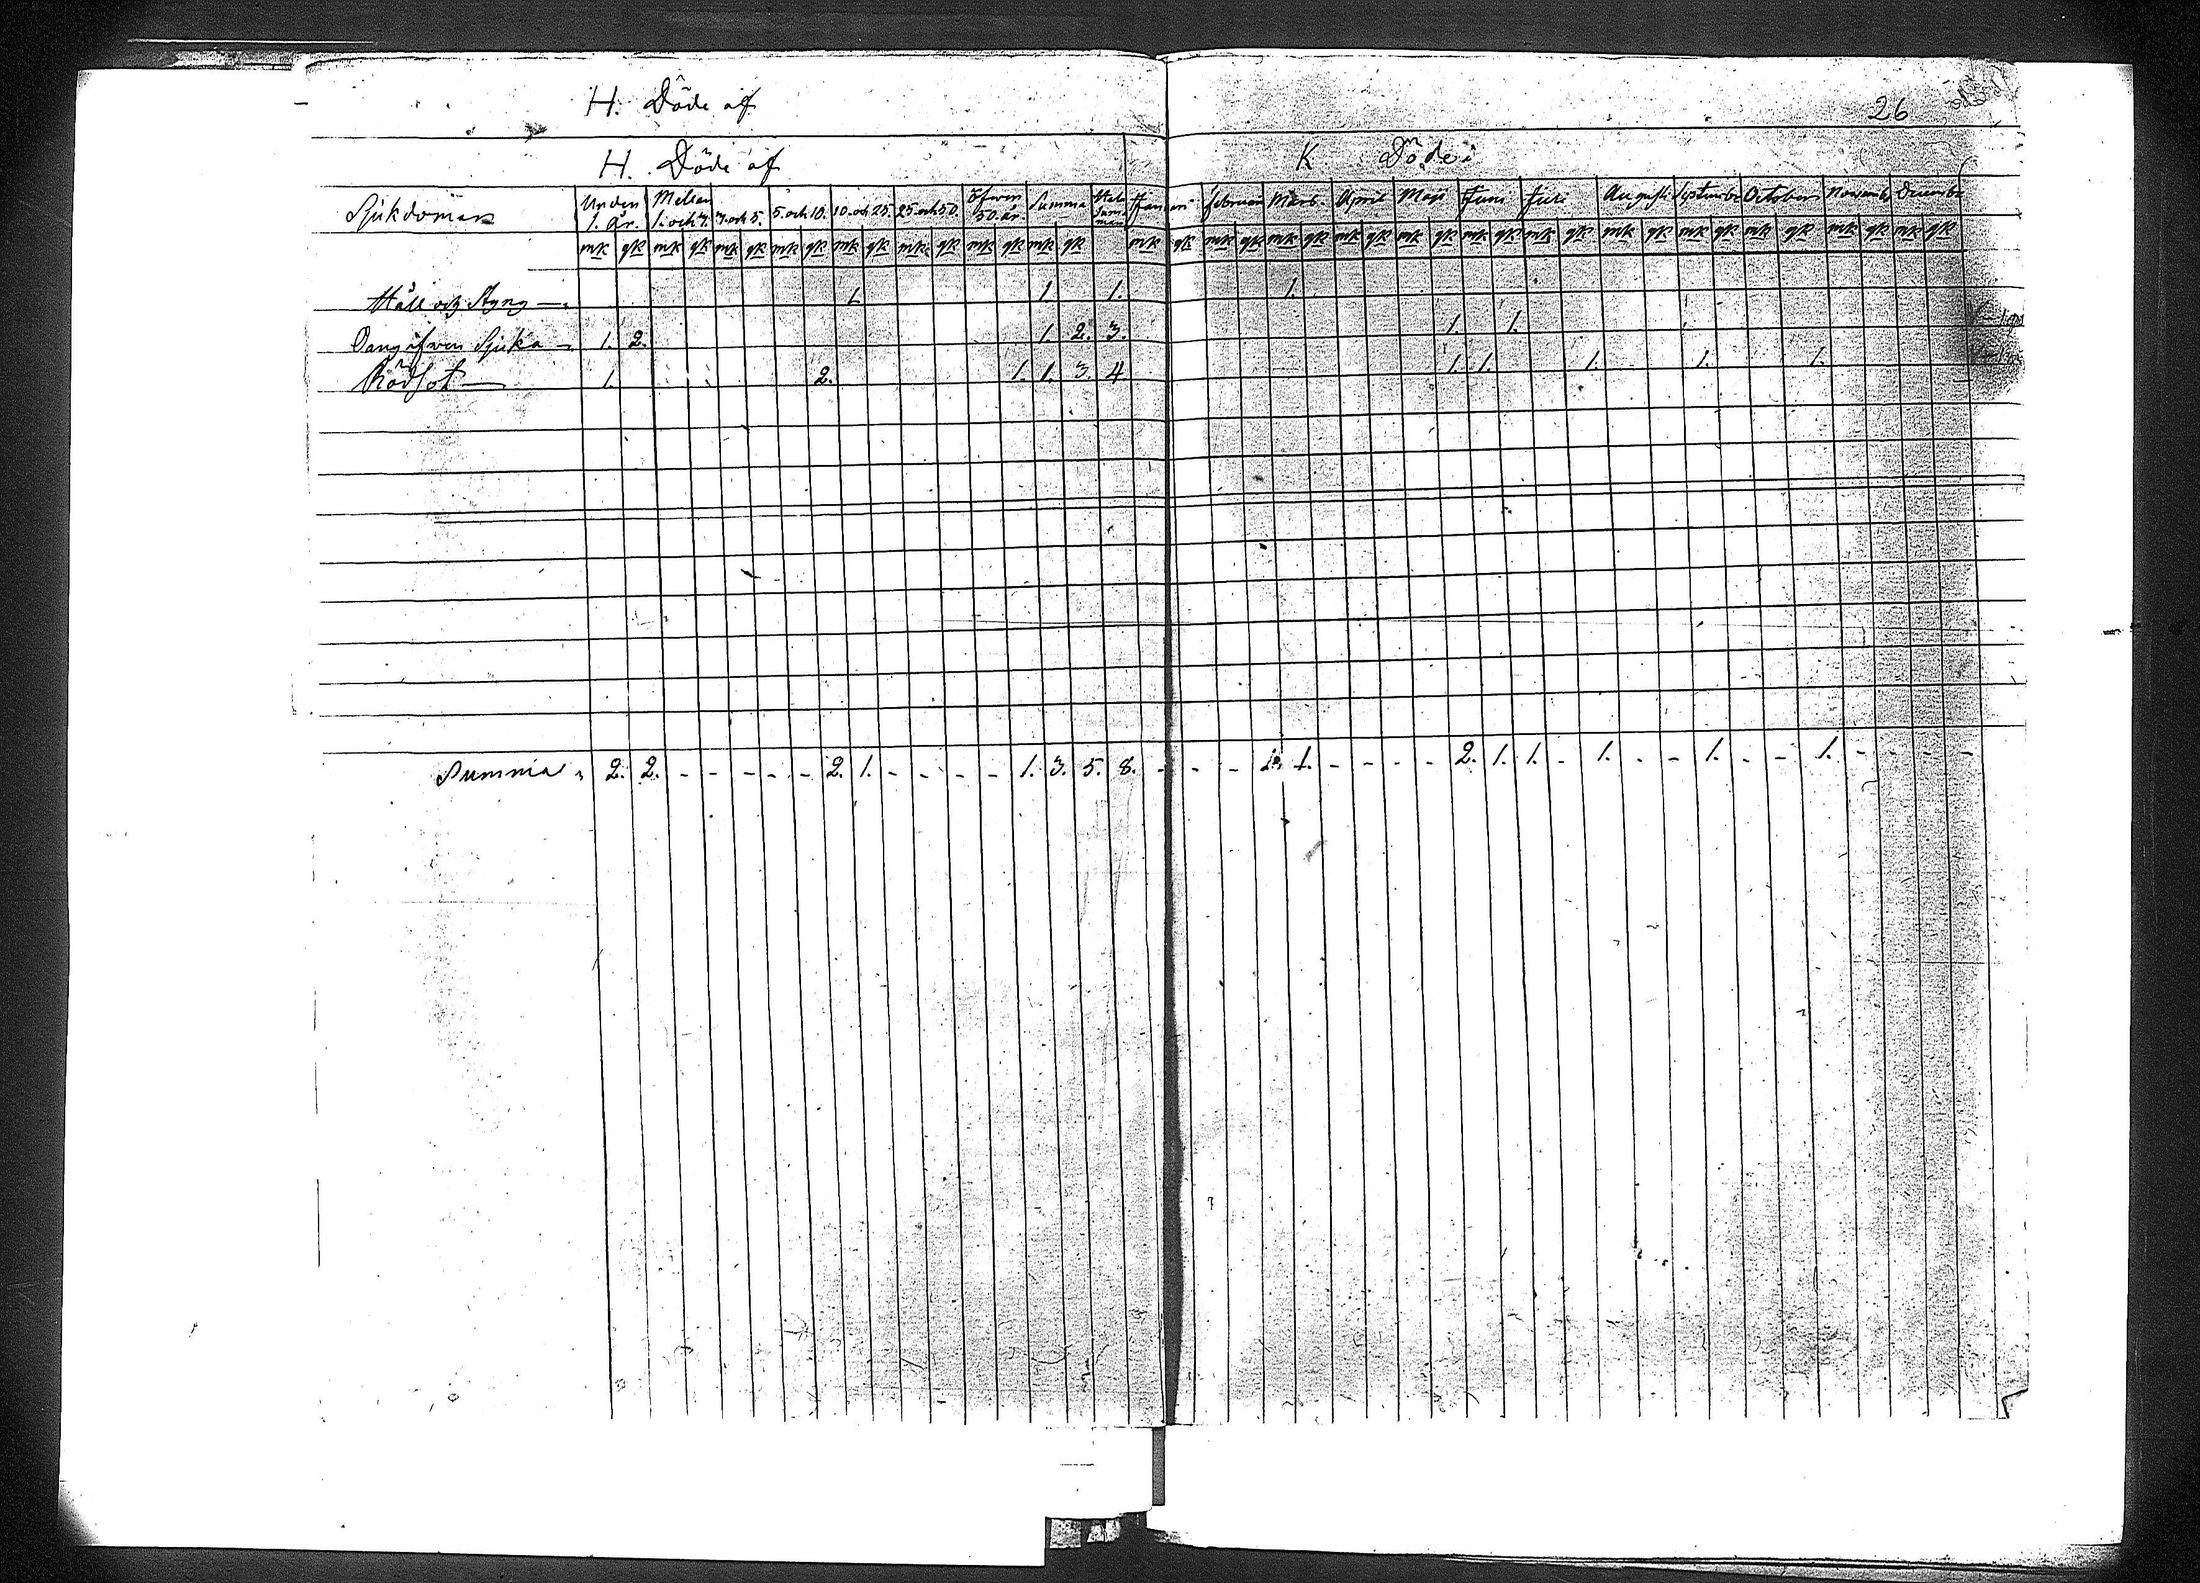 H. Döde af
26
H. Döde af K Döde i
Sjukdomar Under 1. år. Mellan 1. och 3. 3. och 5. 5. och 10. 10. och 25. 25. och 50. Öfwer 50. år. Summa Januari Februari Mars. April Maji Juni Juli Augusti September October November December
mk qk mk qk mk qk mk qk mk qk mk qk mk qk mk qk mk qk mk qk mk qk mk qk mk qk mk qk mk qk mk qk mk qk mk qk mk qk mk qk
Håll och Styng — 1. 1. 1. 1.
Oangifven Sjuka — 1. 2. 1. 2. 3. 1. 1.
Rödsot — 1. 2. 1. 1. 3. 4 1. 1. 1. 1. 1.
Summa 2. 2. - - - - - 2. 1. - - - - 1. 3. 5. 8. - - - 1. - - - - 2. 1. 1. - 1. - - 1. - - 1. - - - -